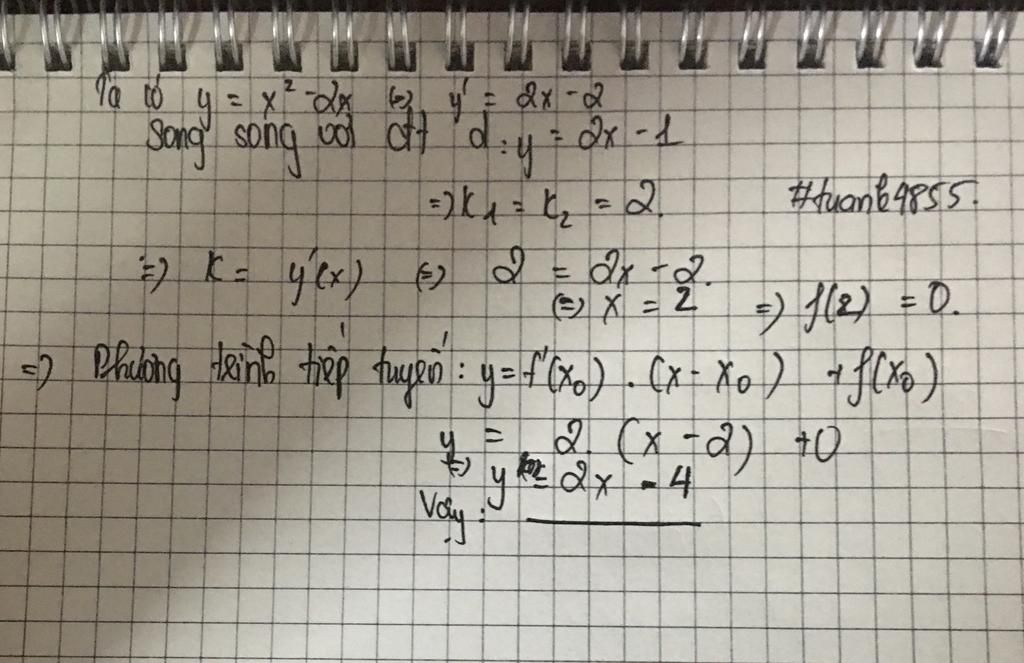 Ta có y = x² - 2x (=) y' = 2x - 2
Song song với đt d: y = 2x - 1
=> K₁ = K₂ = 2. #tuanb4855.
=> K = y'(x) (=) 2 = 2x - 2.
(=) x = 2 => f(2) = 0.
=> Phương trình tiếp tuyến: y = f'(x₀) . (x - x₀) + f(x₀)
y = 2. (x - 2) + 0
(=) y = 2x - 4
Vậy: